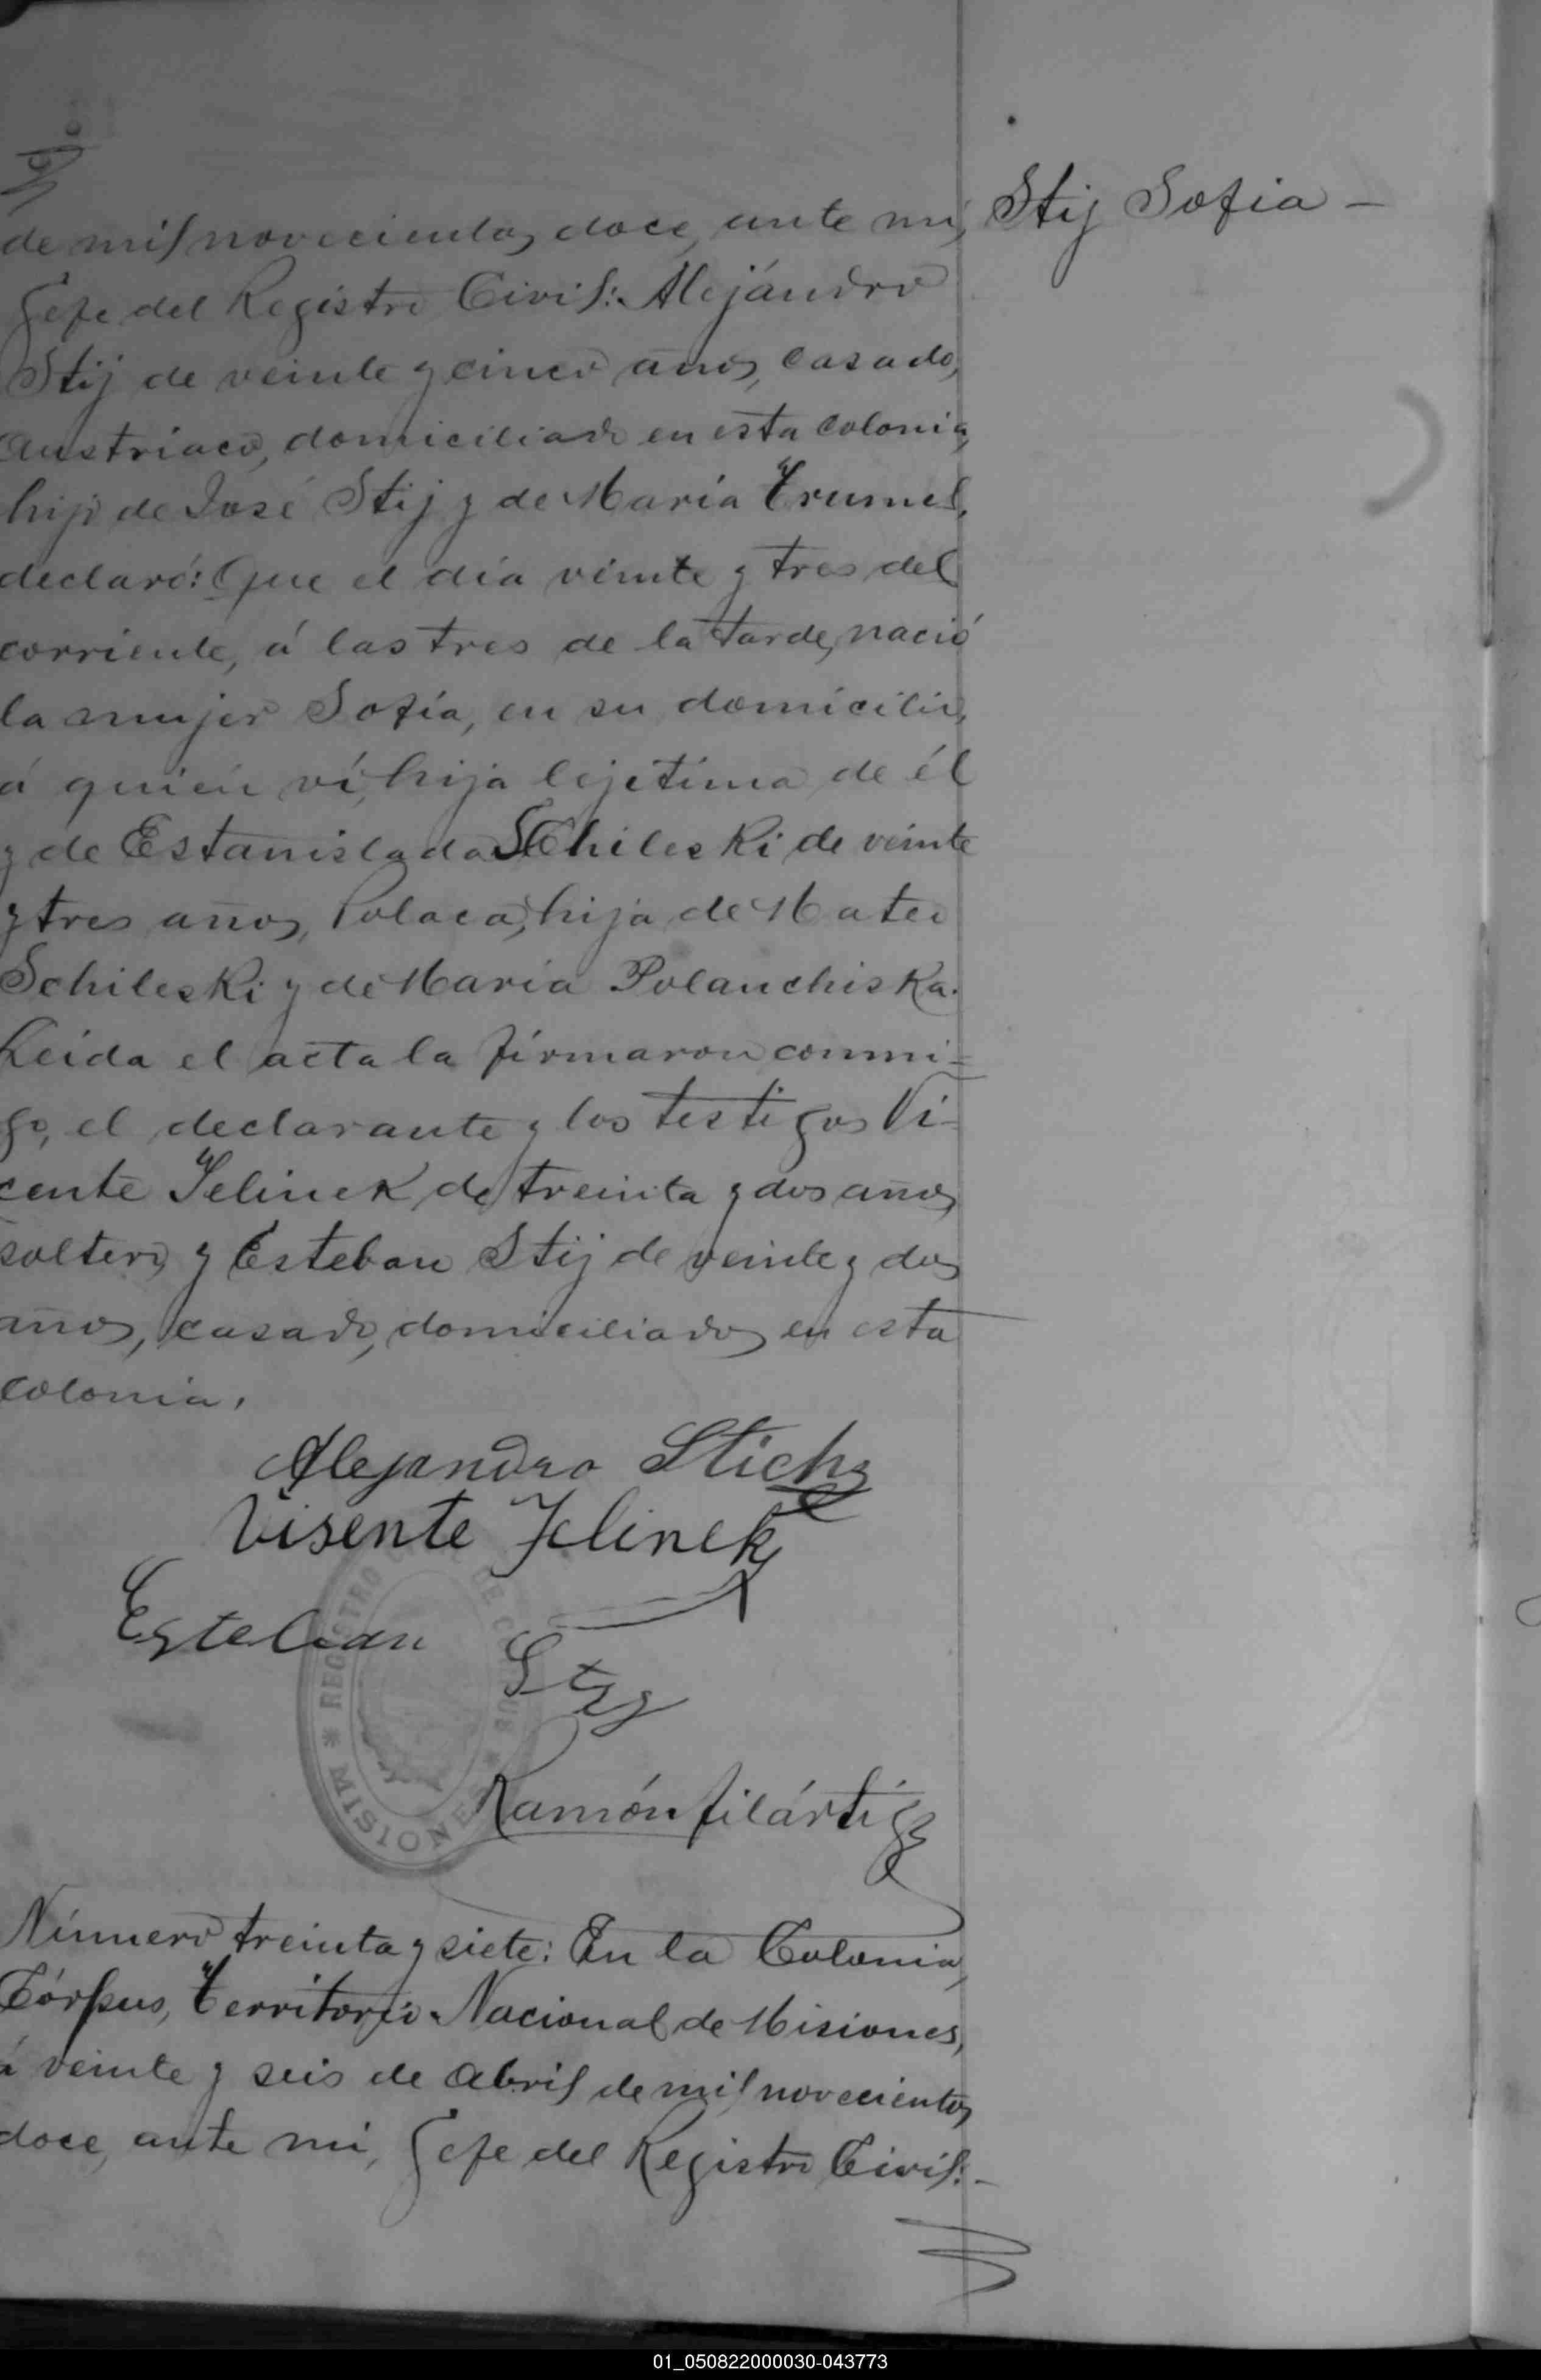 Stij Sofia -
de mil novecientos doce, ante mi,
Gefe del Registro Civil: Alejándro
Stij de veinte y cinco años, casado,
Austriaco, domiciliado en esta colonia,
hijo de José Stij y de María Trumel,
declaró: Que el día veinte y tres del
corriente, á las tres de la tarde, nació
la mujer Sofía, en su domicilio,
á quién ví, hija lejetima de él
y de Estanislada Schileski de veinte
y tres años, Polaca, hija de Mateo
Schileski y de María Polanchiska.
Leida el acta la firmaron conmi-
go, el declarante y los testigos Vi-
cente Yelinek de treinta y dos años,
soltero, y Esteban Stij de veinte y dos
años, casado, domiciliados en esta
colonia.
Alejandro Stich
Visente Jelinek
Esteban
REGISTRO DE CORPUS * MISIONES *
Ramón Filártiga
Número treinta y siete: En la Colonia,
Córpus, Territorio Nacional de Misiones,
á veinte y seis de Abril de mil novecientos
doce, ante mi, Gefe del Registro Civil:-
01_050822000030-043773